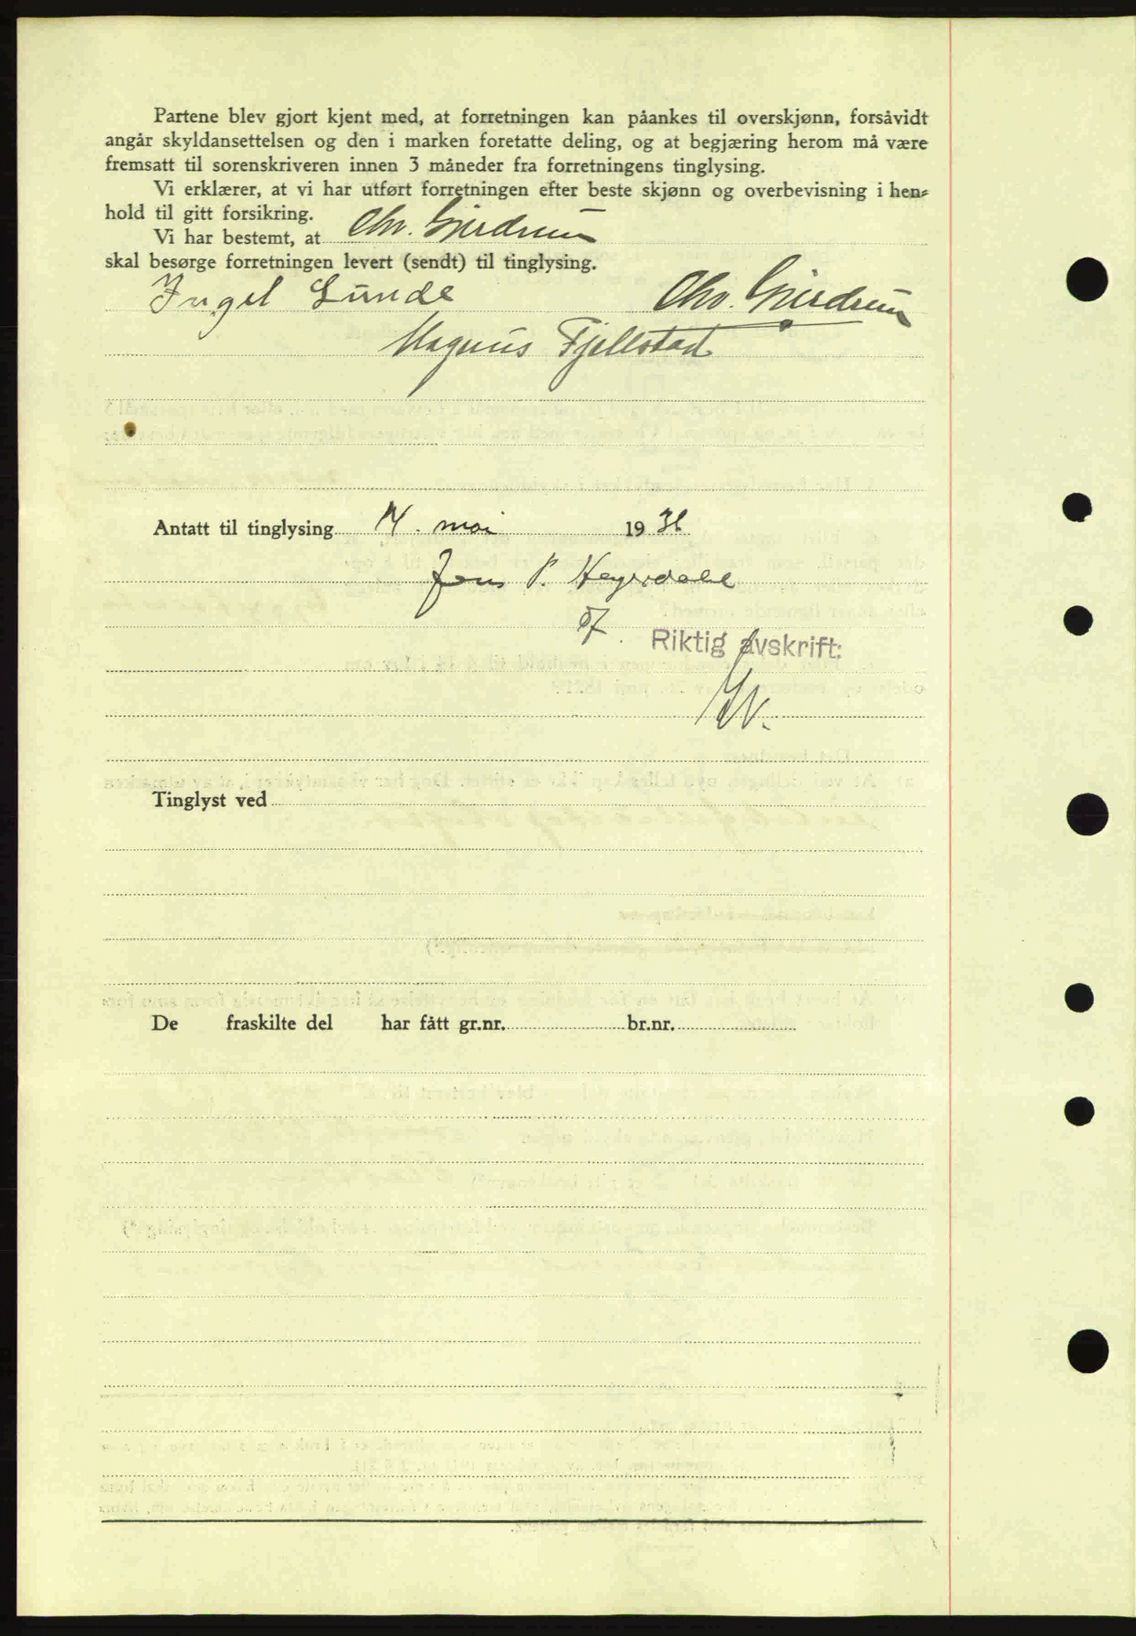 Partene blev gjort kjent med, at forretningen kan påankes til overskjønn, forsåvidt
angår skyldansettelsen og den i marken foretatte deling, og at begjæring herom må være
fremsatt til sorenskriveren innen 3 måneder fra forretningens tinglysing.
Vi erklærer, at vi har utført forretningen efter beste skjønn og overbevisning i hen-
hold til gitt forsikring.
Vi har bestemt, at Chr. Gjerdrum
skal besørge forretningen levert (sendt) til tinglysing.
Ingel Lunde Chr. Gjerdrum
Magnus Fjellstad
Antatt til tinglysing 14. mai 19
Jens P. Heyerdahl
Riktig avskrift:
Tinglyst ved
De fraskilte del har fått gr.nr. br.nr.